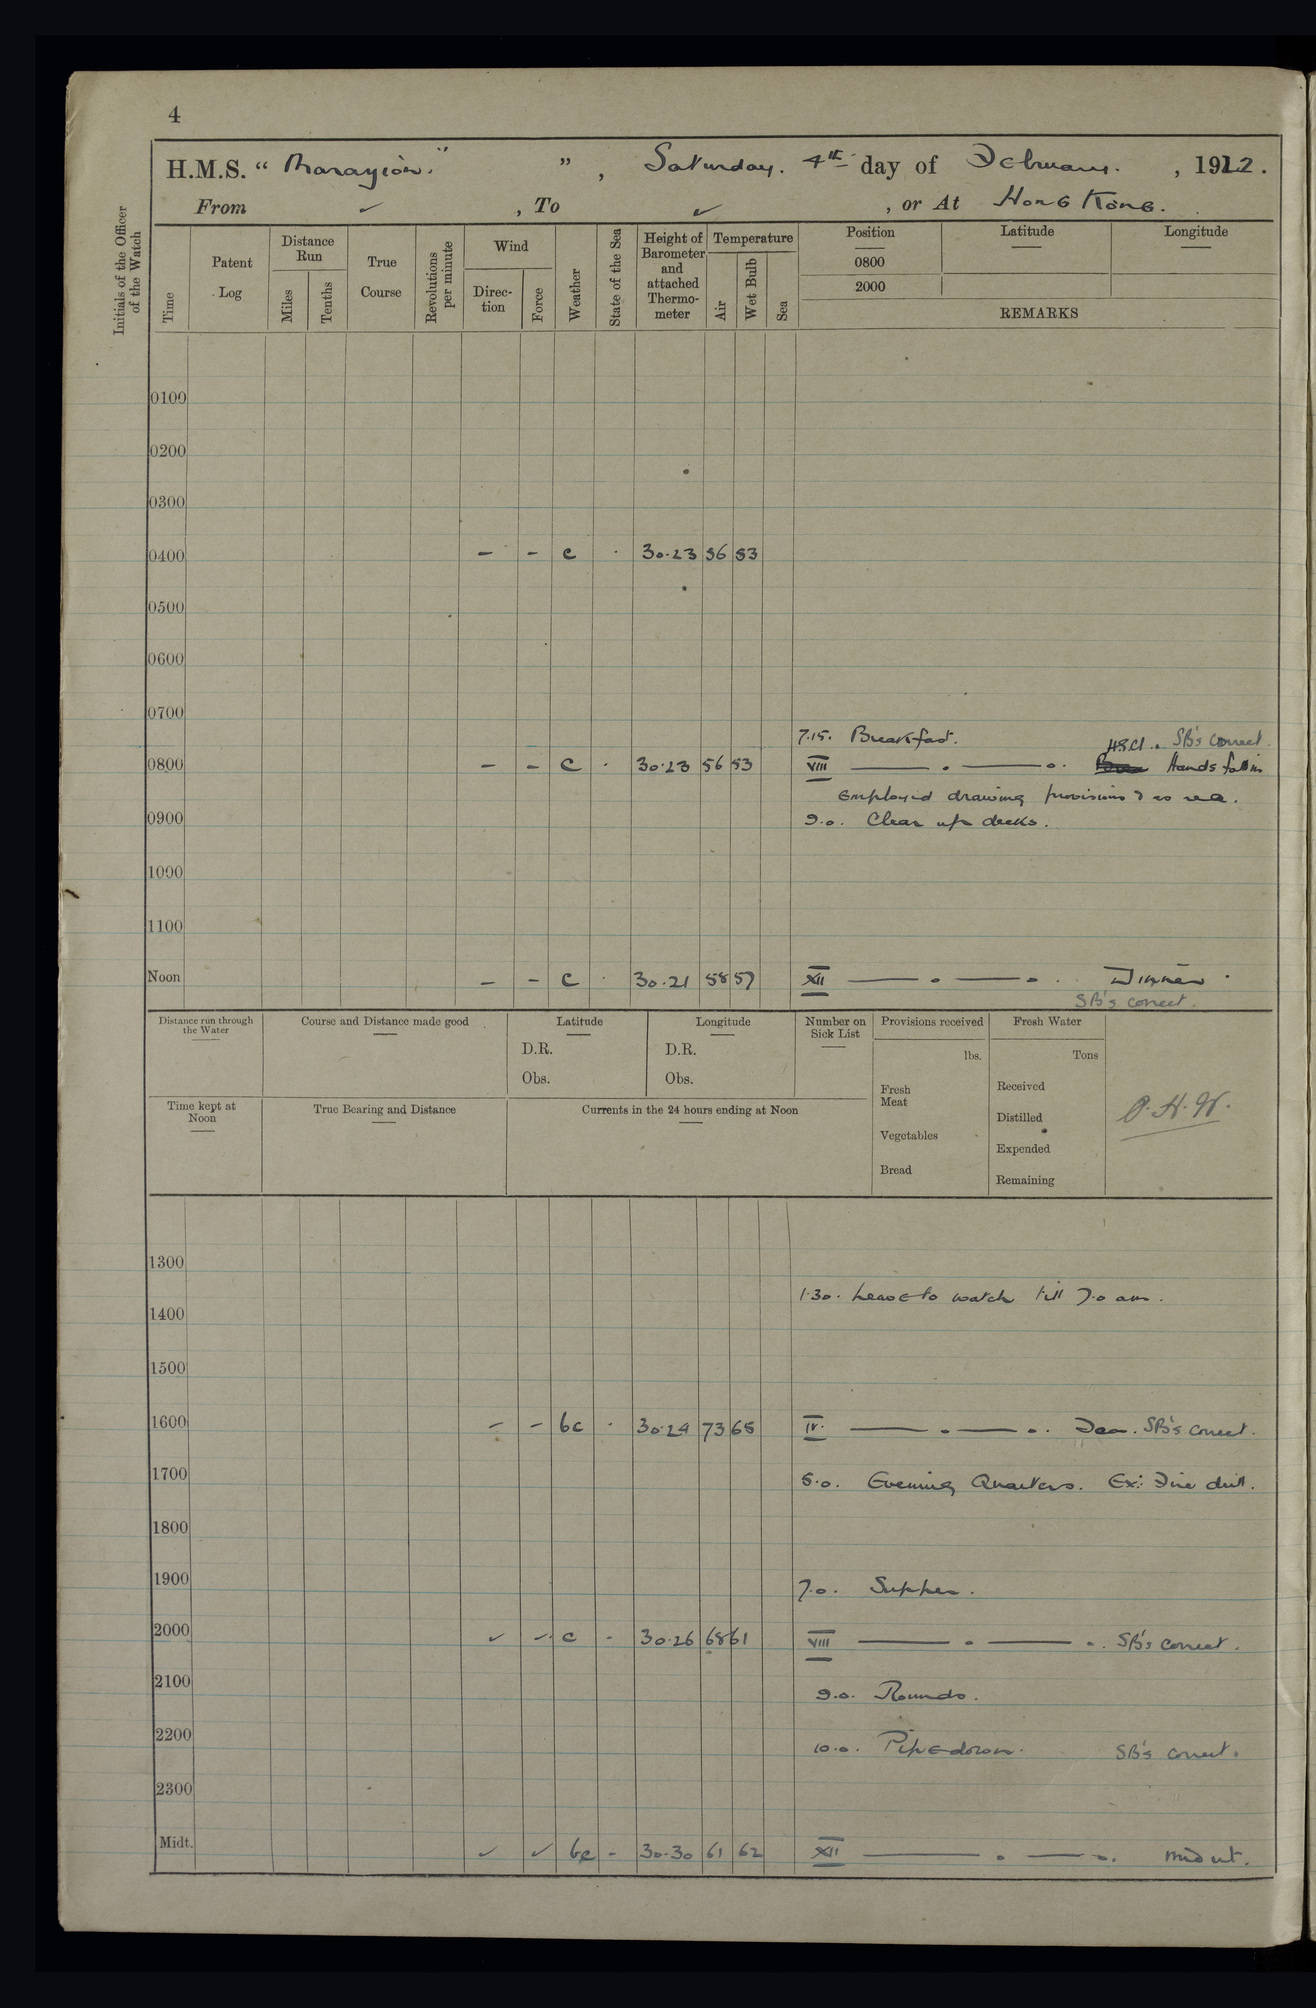 4
H.M.S. " Marazion. " , Saturday. 4th day of February. , 1922.
From ✓ , To ✓ , or At Hong Kong.
Initials of the Officer of the Watch
Time
Patent Log
Distance Run
Miles
Tenths
True Course
Revolutions per minute
Wind
Direction
Force
Weather
State of the Sea
Height of Barometer and attached Thermometer
Temperature
Air
Wet Bulb
Sea
Position Latitude Longitude
0800
2000
REMARKS
0100
0200
0300
0400 - - c · 30.23 56 53
0500
0600
0700
7.15. Breakfast. SB's correct.
0800 - - c · 30.23 56 53 VIII Hands fall in
Employed drawing provisions & as req.
0900 9.0. Clear up decks.
1000
1100
Noon - - c · 30.21 58 57 XII Dinner.
SB's correct.
Distance run through the Water
Course and Distance made good
Latitude
D.R.
Obs.
Longitude
D.R.
Obs.
Number on Sick List
Provisions received
lbs.
Fresh Meat
Vegetables
Bread
Fresh Water
Tons
Received
Distilled
Expended
Remaining
P.H.W.
Time kept at Noon
True Bearing and Distance
Currents in the 24 hours ending at Noon
1300
1.30. Leave to watch till 7.0 am.
1400
1500
1600 - - bc · 30.24 73 65 IV. Tea. SB's correct.
1700 5.0. Evening Quarters. Ex: Fire drill.
1800
1900 7.0. Supper.
2000 ✓ ✓ c - 30.26 68 61 VIII SB's correct.
2100 9.0. Rounds.
2200 10.0. Pipe down. SB's correct.
2300
Midt. ✓ ✓ bc - 30.30 61 62 XII